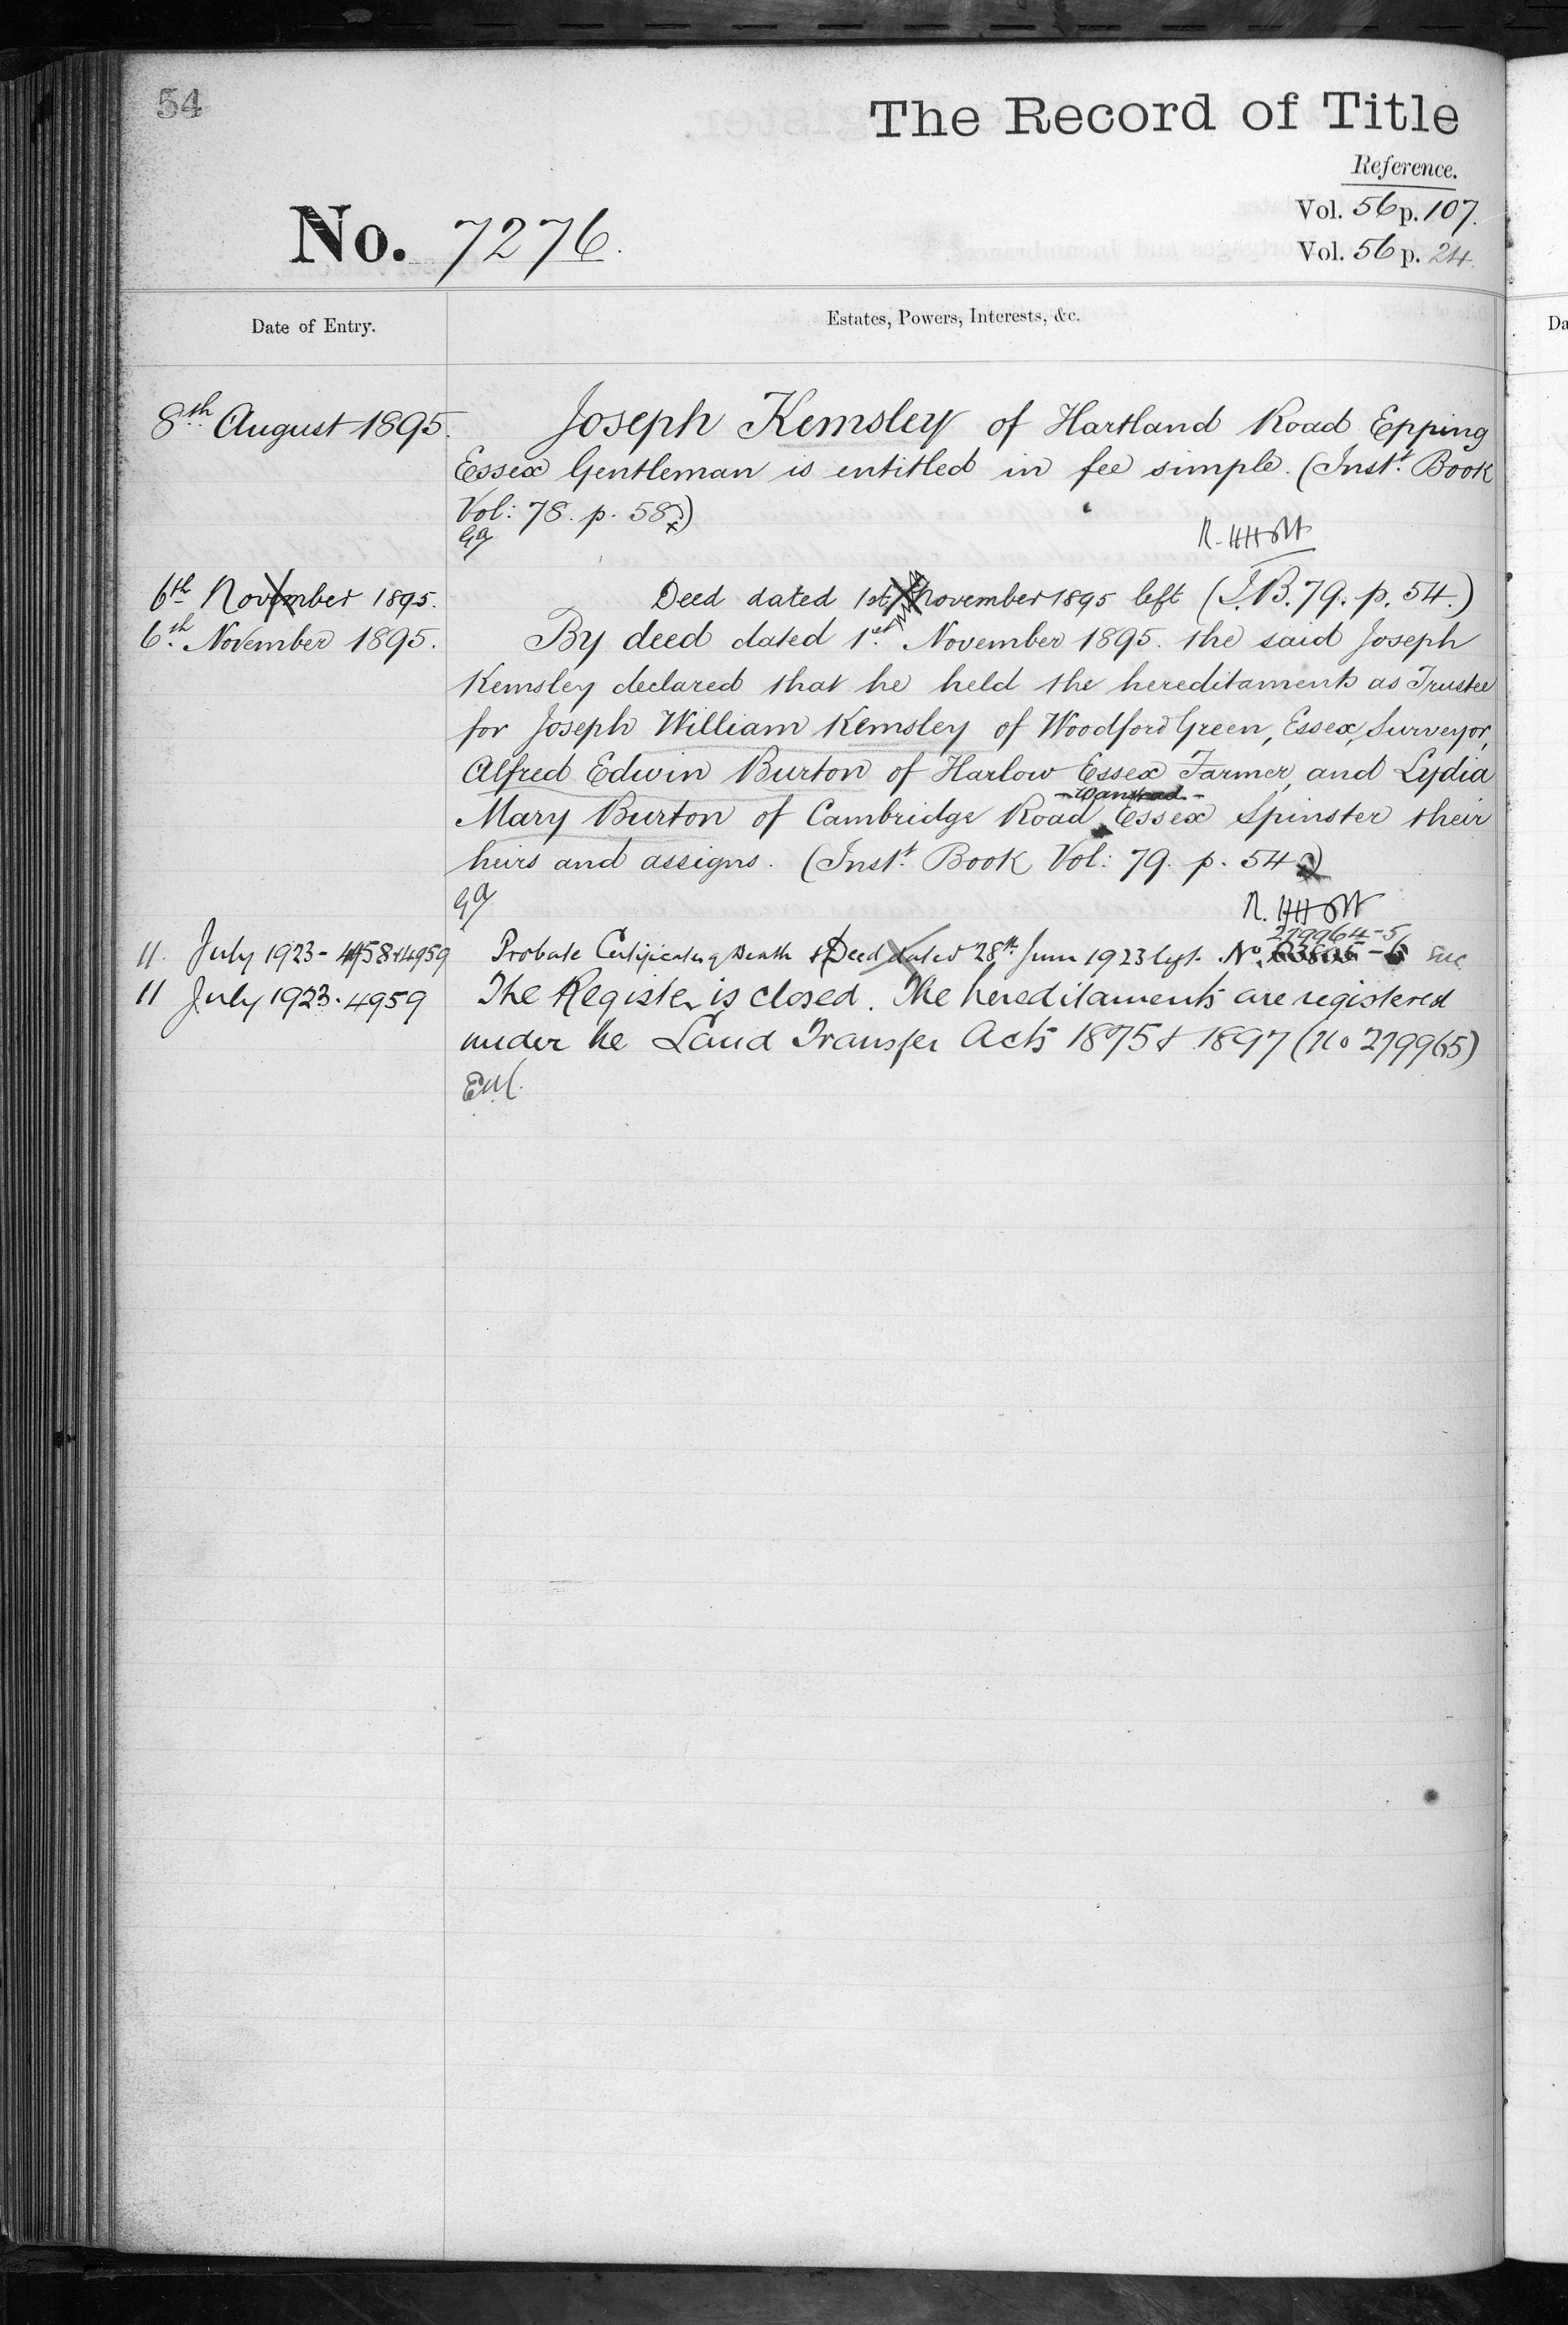 54
The Record of Title
Reference.
Vol. 56 p. 107.
No. 7276.
Vol. 56 p. 24.
Date of Entry.
Estates, Powers, Interests, &c.
8th August 1895. Joseph Kemsley of Hartland Road Epping
Essex Gentleman is entitled in fee simple. (Inst. Book
Vol: 78. p. 58.)
6th November 1895. Deed dated 1st November 1895 left (I.B. 79. p. 54.)
6th November 1895. By deed dated 1st November 1895. the said Joseph
Kemsley declared that he held the hereditaments as Trustee
for Joseph William Kemsley of Woodford Green, Essex, Surveyor,
Alfred Edwin Burton of Harlow Essex Farmer, and Lydia
Wanstead
Mary Burton of Cambridge Road Essex Spinster their
heirs and assigns. (Inst. Book Vol: 79. p. 54.)
279964-5
11. July 1923 - 4958+4959 Probate Certificates of Death & Deed dated 28th June 1923 No.
11 July 1923. 4959 The Register is closed. The hereditaments are registered
under the Land Transfer Acts 1875 & 1897 (No 279965)